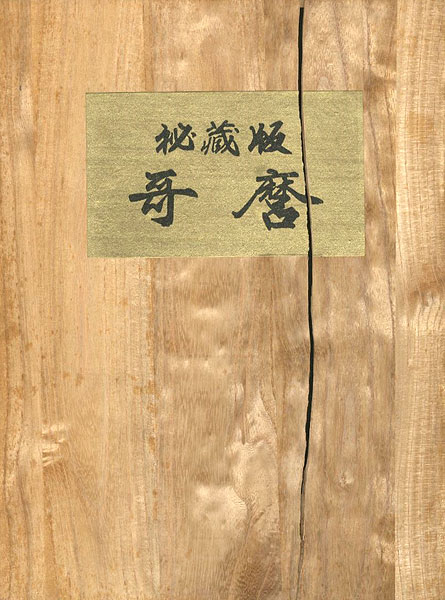 秘蔵版
哥麿